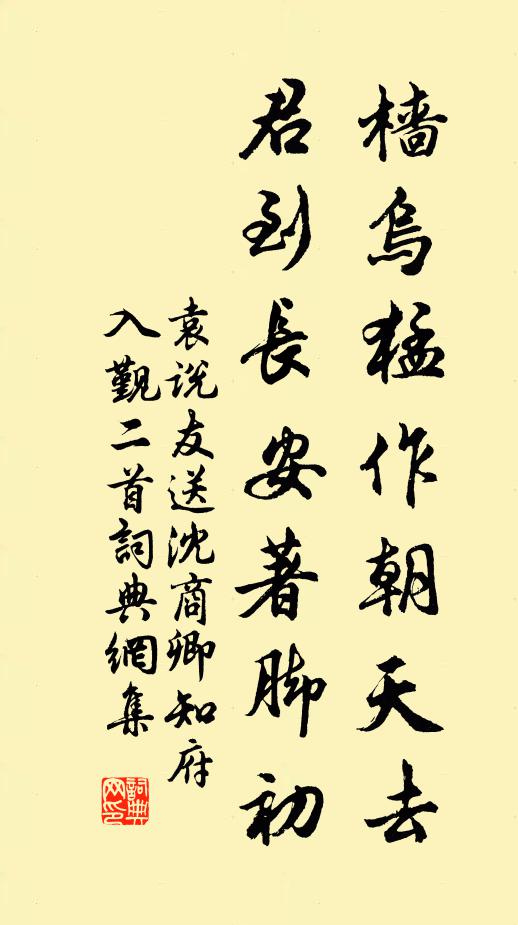 檣烏猛作朝天去
君到長安著脚初
袁說友送沈商卿知府
入覲二首詞典網集
詞典
网印